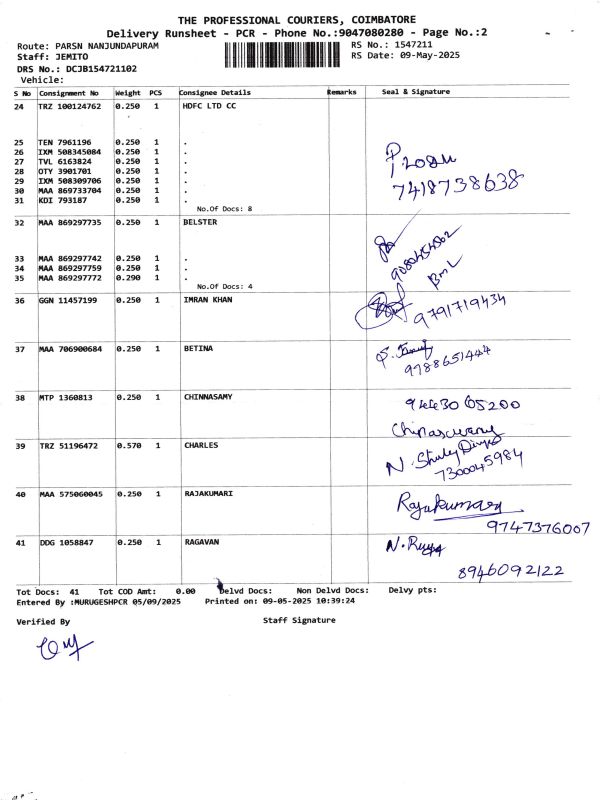 THE PROFESSIONAL COURIERS, COIMBATORE
Delivery Runsheet - PCR - Phone No.:9047080280 - Page No.:2
Route: PARSN NANJUNDAPURAM RS No.: 1547211
Staff: JEMITO RS Date: 09-May-2025
DRS No.: DCJB154721102
Vehicle:
S No Consignment No Weight PCS Consignee Details Remarks Seal & Signature
24 TRZ 100124762 0.250 1 HDFC LTD CC
25 TEN 7961196 0.250 1 .
26 IXM 508345084 0.250 1 .
27 TVL 6163824 0.250 1 .
28 OTY 3901701 0.250 1 .
29 IXM 508309706 0.250 1 .
30 MAA 869733704 0.250 1 .
31 KDI 793187 0.250 1 .
No.Of Docs: 8
7418738638
32 MAA 869297735 0.250 1 BELSTER
33 MAA 869297742 0.250 1 .
34 MAA 869297759 0.250 1 .
35 MAA 869297772 0.290 1 .
No.Of Docs: 4
36 GGN 11457199 0.250 1 IMRAN KHAN
9791719434
37 MAA 706900684 0.250 1 BETINA
9788651444
38 MTP 1360813 0.250 1 CHINNASAMY
94430 65200
39 TRZ 51196472 0.570 1 CHARLES
7300045984
40 MAA 575060045 0.250 1 RAJAKUMARI
Rajakumary
9747376007
41 DDG 1058847 0.250 1 RAGAVAN
8946092122
Tot Docs: 41 Tot COD Amt: 0.00 Delvd Docs: Non Delvd Docs: Delvy pts:
Entered By :MURUGESHPCR 05/09/2025 Printed on: 09-05-2025 10:39:24
Verified By Staff Signature